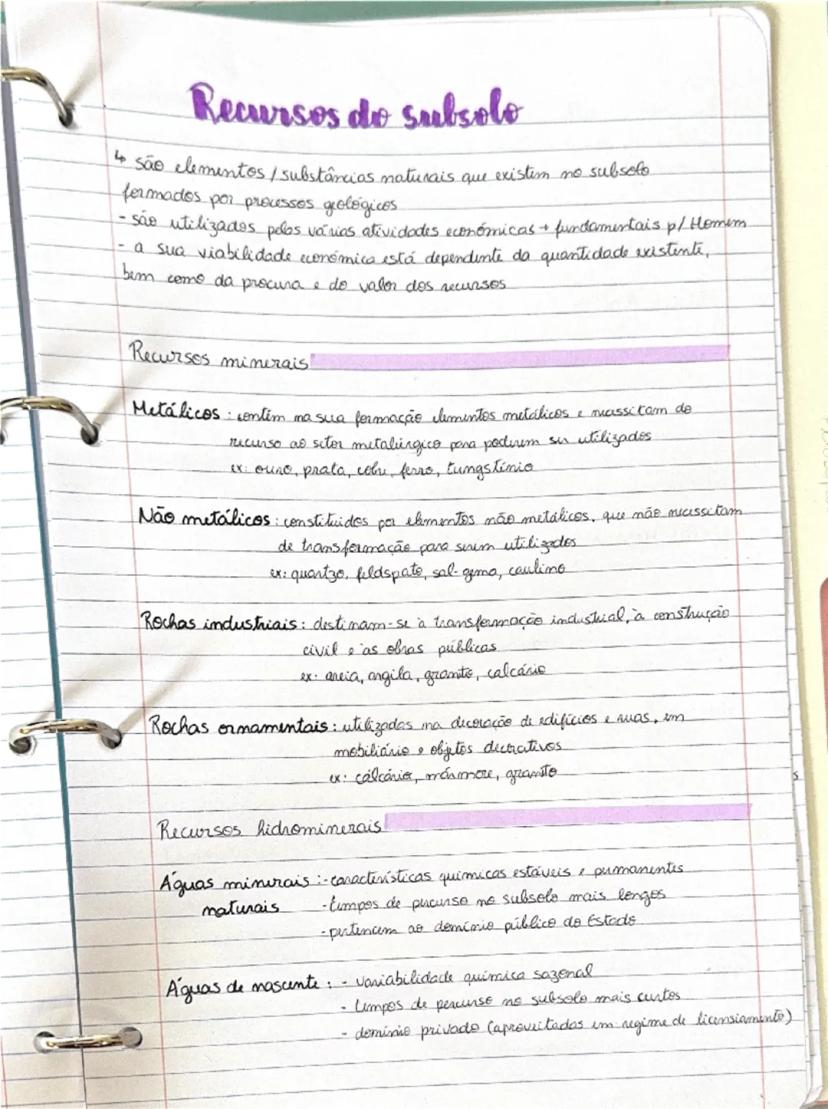 Recursos do subsolo
↳ são elementos / substâncias naturais que existem no subsolo
formados por processos geológicos
- são utilizados pelas várias atividades económicas → fundamentais p/ Homem
- a sua viabilidade económica está dependente da quantidade existente,
bem como da procura e do valor dos recursos
Recursos minerais
Metálicos : contêm na sua formação elementos metálicos e necessitam do
recurso ao setor metalúrgico para poderem ser utilizados
ex: ouro, prata, cobre, ferro, tungsténio
Não metálicos : constituídos por elementos não metálicos, que não necessitam
de transformação para serem utilizados
ex: quartzo, feldspato, sal-gema, caulino
Rochas industriais : destinam-se à transformação industrial, à construção
civil e às obras públicas
ex: areia, argila, granito, calcário
Rochas ornamentais : utilizadas na decoração de edifícios e ruas, em
mobiliário e objetos decorativos
ex: calcário, mármore, granito
Recursos hidrominerais
Águas minerais :- características químicas estáveis e permanentes
naturais - tempos de percurso no subsolo mais longos
- pertencem ao domínio público do Estado
Águas de nascente : - variabilidade química sazonal
- tempos de percurso no subsolo mais curtos
- domínio privado (aproveitadas em regime de licensiamento)